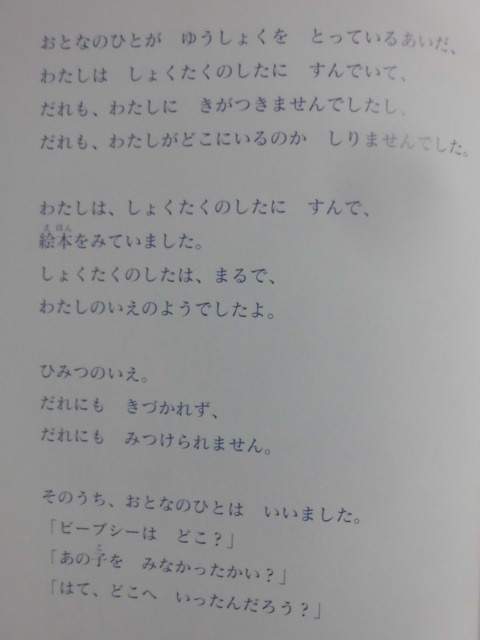 おとなのひとが　ゆうしょくを　とっているあいだ、
わたしは　しょくたくのしたに　すんでいて、
だれも、わたしに　きがつきませんでしたし、
だれも、わたしがどこにいるのか　しりませんでした。
わたしは、しょくたくのしたに　すんで、
絵本をみていました。
しょくたくのしたは、まるで、
わたしのいえのようでしたよ。
ひみつのいえ。
だれにも　きづかれず、
だれにも　みつけられません。
そのうち、おとなのひとは　いいました。
「ビープシーは　どこ？」
「あの子を　みなかったかい？」
「はて、どこへ　いったんだろう？」